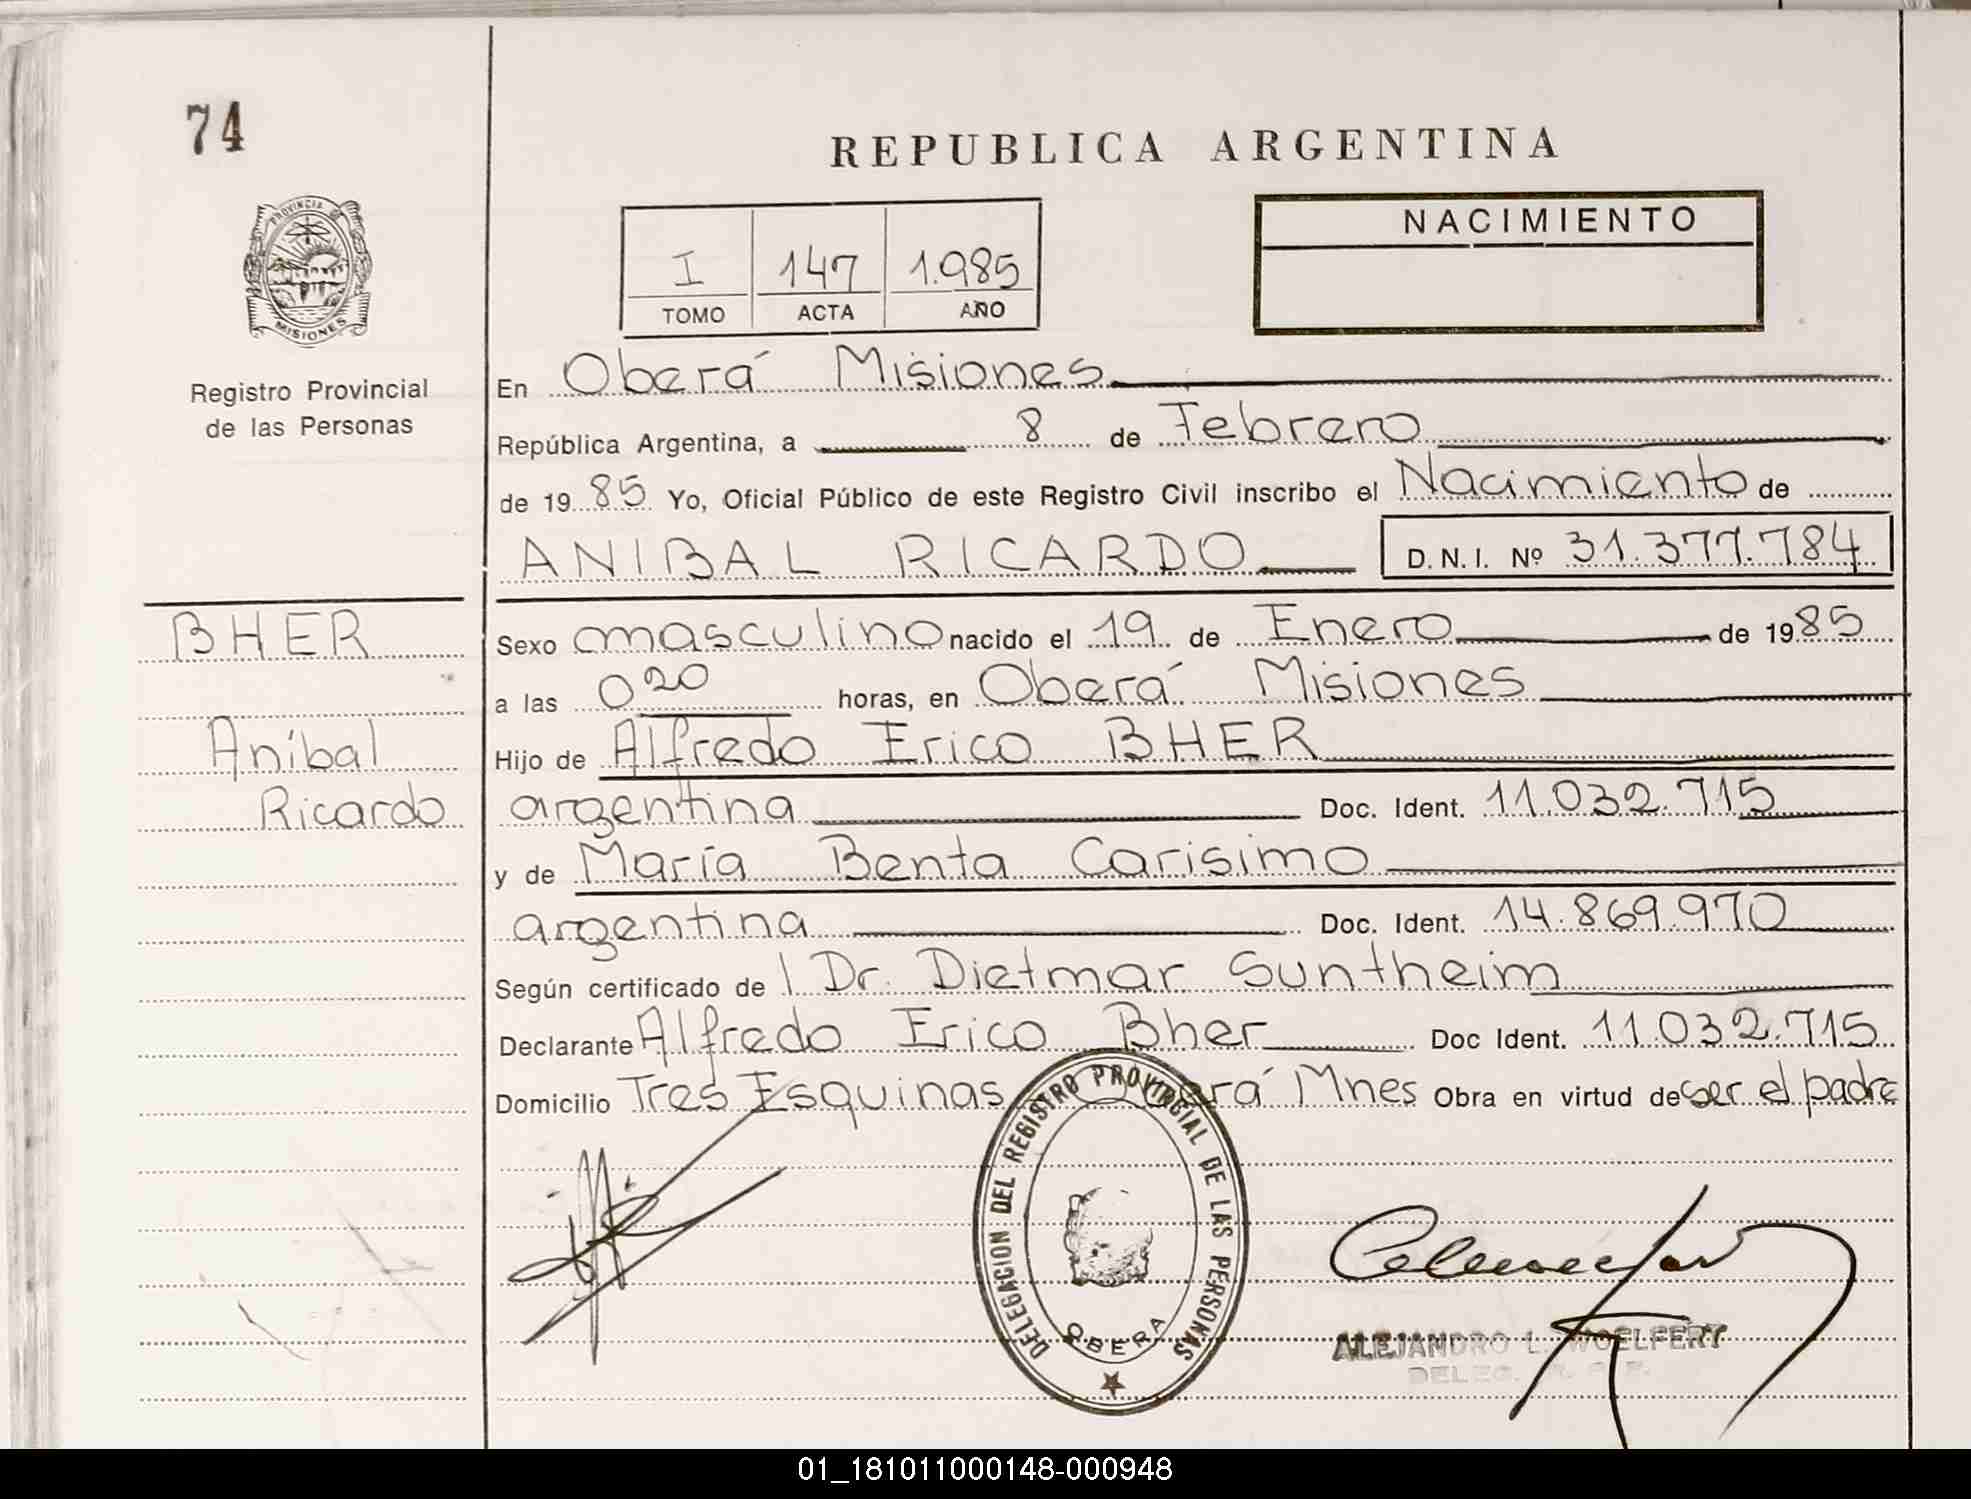 74
REPUBLICA ARGENTINA
PROVINCIA DE
MISIONES
Registro Provincial
de las Personas
I 147 1.985
TOMO ACTA AÑO
NACIMIENTO
En Oberá Misiones
República Argentina, a 8 de Febrero
de 19 85 Yo, Oficial Público de este Registro Civil inscribo el Nacimiento de
ANIBAL RICARDO D. N. I. Nº 31.377.784
BHER
Aníbal
Ricardo
Sexo masculino nacido el 19 de Enero de 19 85
a las 0 20 horas, en Oberá Misiones
Hijo de Alfredo Erico BHER
argentina Doc. Ident. 11.032.715
y de María Benta Carisimo
argentina Doc. Ident. 14.869.970
Según certificado de Dr. Dietmar Suntheim
Declarante Alfredo Erico Bher Doc Ident. 11.032.715
Domicilio Tres Esquinas Oberá Mnes Obra en virtud de ser el padre
DELEGACION DEL REGISTRO PROVINCIAL DE LAS PERSONAS
OBERA
ALEJANDRO L. WOELFERT
DELEG.
01_181011000148-000948